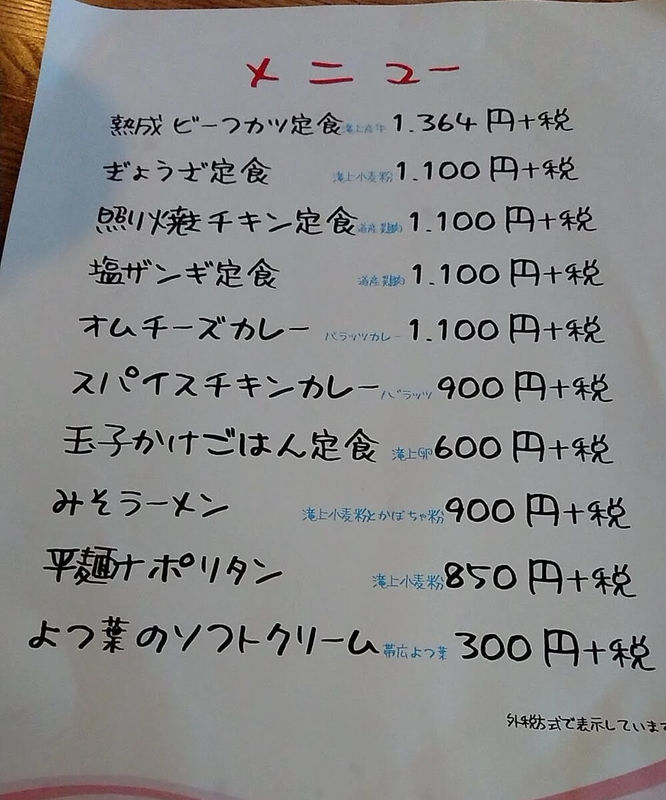 メニュー
熟成ビーフカツ定食 滝上産牛 1.364円+税
ぎょうざ定食 滝上小麦粉 1.100円+税
照り焼きチキン定食 道産鶏肉 1.100円+税
塩ザンギ定食 道産鶏肉 1.100円+税
オムチーズカレー バラッツカレー 1.100円+税
スパイスチキンカレー バラッツ 900円+税
玉子かけごはん定食 滝上卵 600円+税
みそラーメン 滝上小麦粉とかぼちゃ粉 900円+税
平麺ナポリタン 滝上小麦粉 850円+税
よつ葉のソフトクリーム 帯広よつ葉 300円+税
外税方式で表示しています